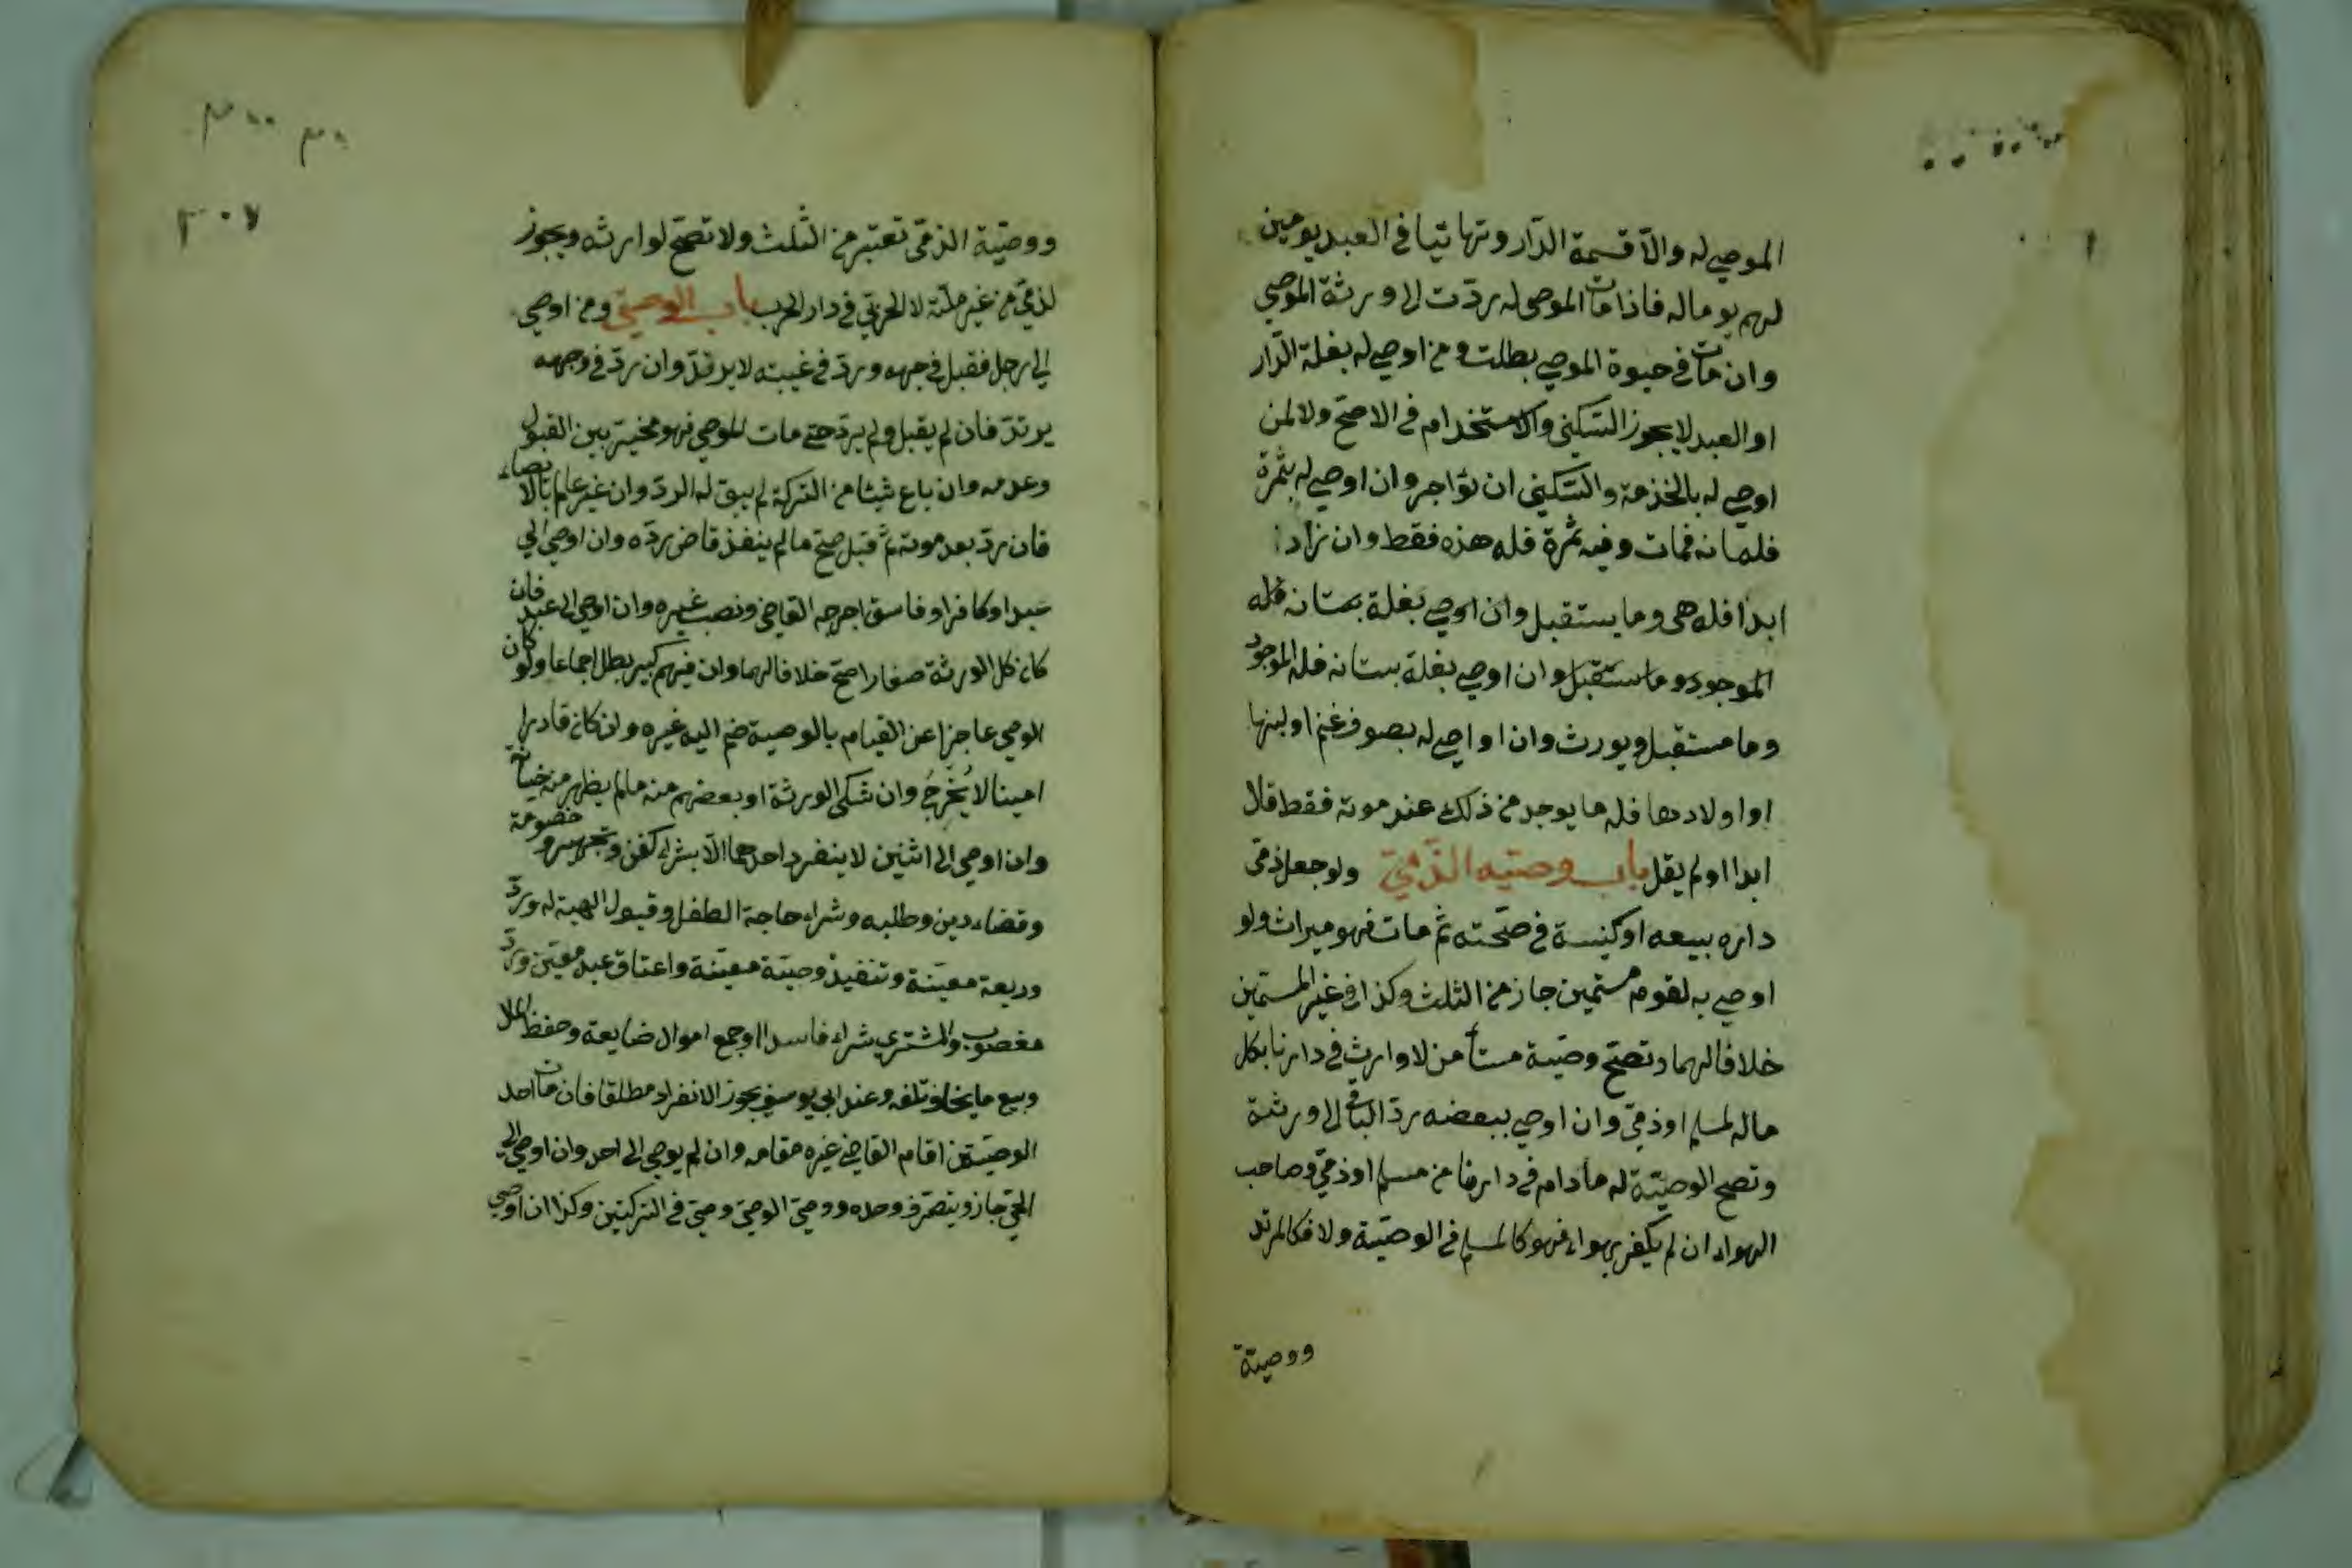 الموصي له والّا قسمة الدّار وتهائيا في العبد يومين
لهم يوما له فاذا مات الموصى له ردّت الى ورثة الموصي
وان مات في حيوة الموصي بطلت ومن اوصي له بغلة الدّار
او العبد لا يجوز السّكني والاستخدام في الاصحّ ولا لمن
اوصي له بالخذمة والسّكني ان يؤاجر وان اوصي له بثمرة
فمات وفيه ثمرة فله هذه فقط وان زاد
ابدا فله هى وما يستقبل وان اوصي بغلة بستانه فله
الموجود وما يستقبل وان اوصي بغلة بستانه فله الموجود
وما مستقبل ويورث وان او اصي له بصوف غنم او لبنها
او اولادها فله ما يوجد من ذلك عند موته فقط قال
ابدا او لم يقل باب وصيّه الذّمّيّ ولو جعل ذمّى
داره بيعه او كنيسة في صحّته ثمّ مات فهو ميراث ولو
اوصي به لقوم مستمين جاز من الثلث وكذا في غير المستمين
خلافا لهما وتصحّ وصيّة مستأمن لا وارث في دارنا بكل
ماله لمسلم او ذمّيّ وان اوصي ببعضه ردّ الباقي الى ورثته
وتصح الوصيّة له ما دام في دارنا من مسلم او ذميّ وصاحب
الهواء ان لم يكفر بهواء فهو كالمسلم في الوصيّة ولا فكالمرتد
ووصيّة
٣٠٧
ووصيّة الذمّى تعتبر من الثلث ولا تصحّ لوارثه ويجوز
لذميّ من غير ملّته لا لحربيّ في دار الحرب باب الوصيّ ومن اوصي
الي رجل فقبل في وجهه وردّ في غيبته لا يرتدّ وان ردّ في وجهه
يرتدّ فان لم يقبل ولم يردّ حتى مات الموصي فهو مخيّر بين القبول
وعدمه وان باع شيئا من التركة لم يبق له الردّ وان غير عالم بالايصاء
فان ردّ بعد موته ثمّ قبل صحّ ما لم ينفذ قاض ردّه وان اوصي الي
عبد او كافر او فاسق اخرجه القاضي ونصب غيره وان اوصي الى عبده فان
كان كل الورثة صغارا صحّ خلافا لهما وان فيهم كبير بطل اجماعا ولو كان
الوصي عاجزا عن القيام بالوصية ضم اليه غيره وان كان قادرا
امينا لا يُخرَجُ وان شكى الورثة او بعضهم منه ما لم يظهر منه خيانة
وان اوصي الى اثنين لا ينفرد احدهما الّا بشراء كفن وتجهيز وخصومة
وقضاء دين وطلبه وشراء حاجة الطفل وقبول الهبة له وردّ
وديعة معيّنة وتنفيذ وصيّة معيّنة واعتاق عبد معيّن وردّ
مغصوب والمشتري شراء فاسدا او جمع اموال ضايعة وحفظ المال
وبيع ما يخاف تلفه وعند ابي يوسف يجوز الانفراد مطلقا فان مات احد
الوصيّين اقام القاضي غيره مقامه وان لم يوصي الى احد وان اوصي الي
الحيّ جاز ويتصرّف وحده ووصيّ الوصيّ وصيّ في التركتين وكذا ان اوصي